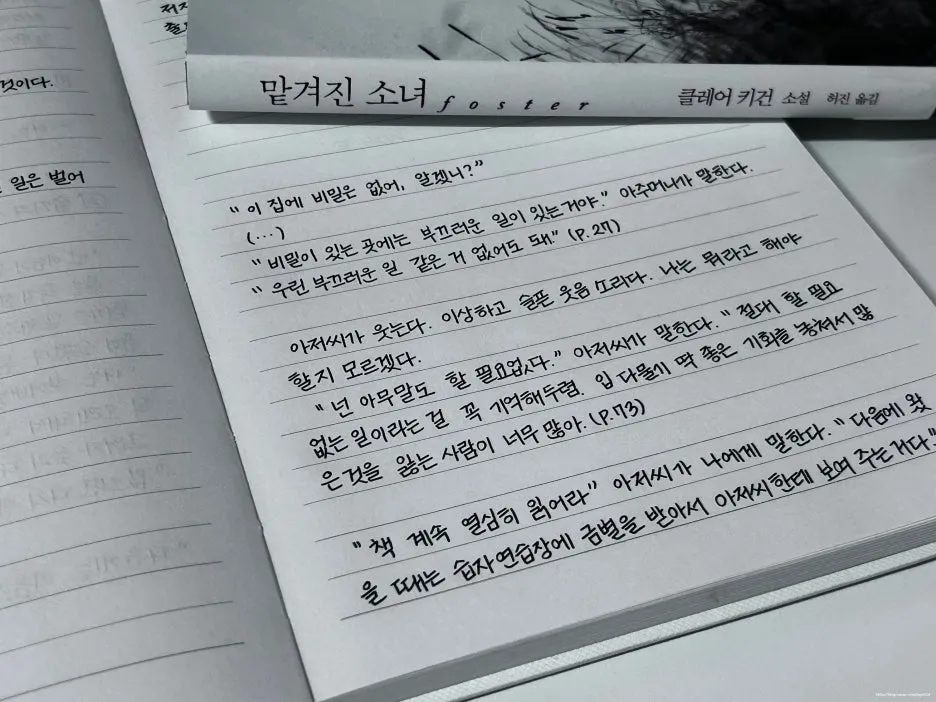 것이다.
일은 벌어
저지
맡겨진 소녀 foster 클레어 키건 소설 허진 옮김
“이 집에 비밀은 없어, 알겠니?”
(...)
“비밀이 있는 곳에는 부끄러운 일이 있는거야.” 아주머니가 말한다.
“우린 부끄러운 일 같은 거 없어도 돼.” (P.27)
아저씨가 웃는다. 이상하고 슬픈 웃음 소리다. 나는 뭐라고 해야
할지 모르겠다.
“넌 아무말도 할 필요없다.” 아저씨가 말한다. “절대 할 필요
없는 일이라는 걸 꼭 기억해두렴. 입 다물기 딱 좋은 기회를 놓쳐서 많
은것을 잃는 사람이 너무 많아. (P.73)
“책 계속 열심히 읽어라” 아저씨가 나에게 말한다. “다음에 왔
을 때는 습자연습장에 금별을 받아서 아저씨한테 보여 주는거다.”